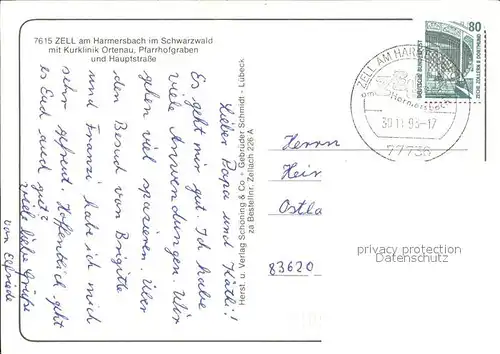 7615 ZELL am Harmersbach im Schwarzwald
mit Kurklinik Ortenau, Pfarrhofgraben
und Hauptstraße
Lieber Papa und Käthi!
Es geht mir gut. Ich habe
viele Anwendungen. Wir
gehen viel spazieren. Über
den Besuch von Brigitte
und Franzi habe ich mich
sehr gefreut. Hoffentlich geht
es Euch auch gut?
Viele liebe Grüße
von Elfriede
Herst. u. Verlag Schöning & Co. + Gebrüder Schmidt - Lübeck
za Bestellnr. Zellach 226 A
ZELL AM HAR
am Harmersbach
30.11.93-17
77736
80
DEUTSCHE BUNDESPOST
ZECHE ZOLLERN II DORTMUND
Herrn
Hein
Ostla
83620
privacy protection
Datenschutz